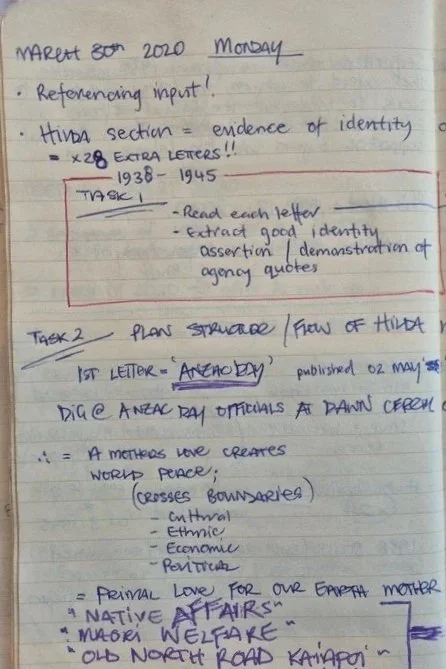 MARCH 30th 2020 MONDAY
· Referencing input!
· HILDA section = evidence of identity
= x28 EXTRA LETTERS!!
1938 - 1945
TASK 1
- Read each letter
- Extract good identity
assertion / demonstration of
agency quotes
TASK 2 PLAN STRUCTURE / FLOW OF HILDA
1ST LETTER = 'ANZAC DAY' published 02 MAY
DIG @ ANZAC DAY OFFICIALS AT DAWN
∴ = A MOTHERS LOVE CREATES
WORLD PEACE;
(CROSSES BOUNDARIES)
- Cultural
- Ethnic
- Economic
- Political
= PRIMAL LOVE FOR OUR EARTH MOTHER
"NATIVE AFFAIRS"
"MAORI WELFARE"
"OLD NORTH ROAD KAIAPOI"